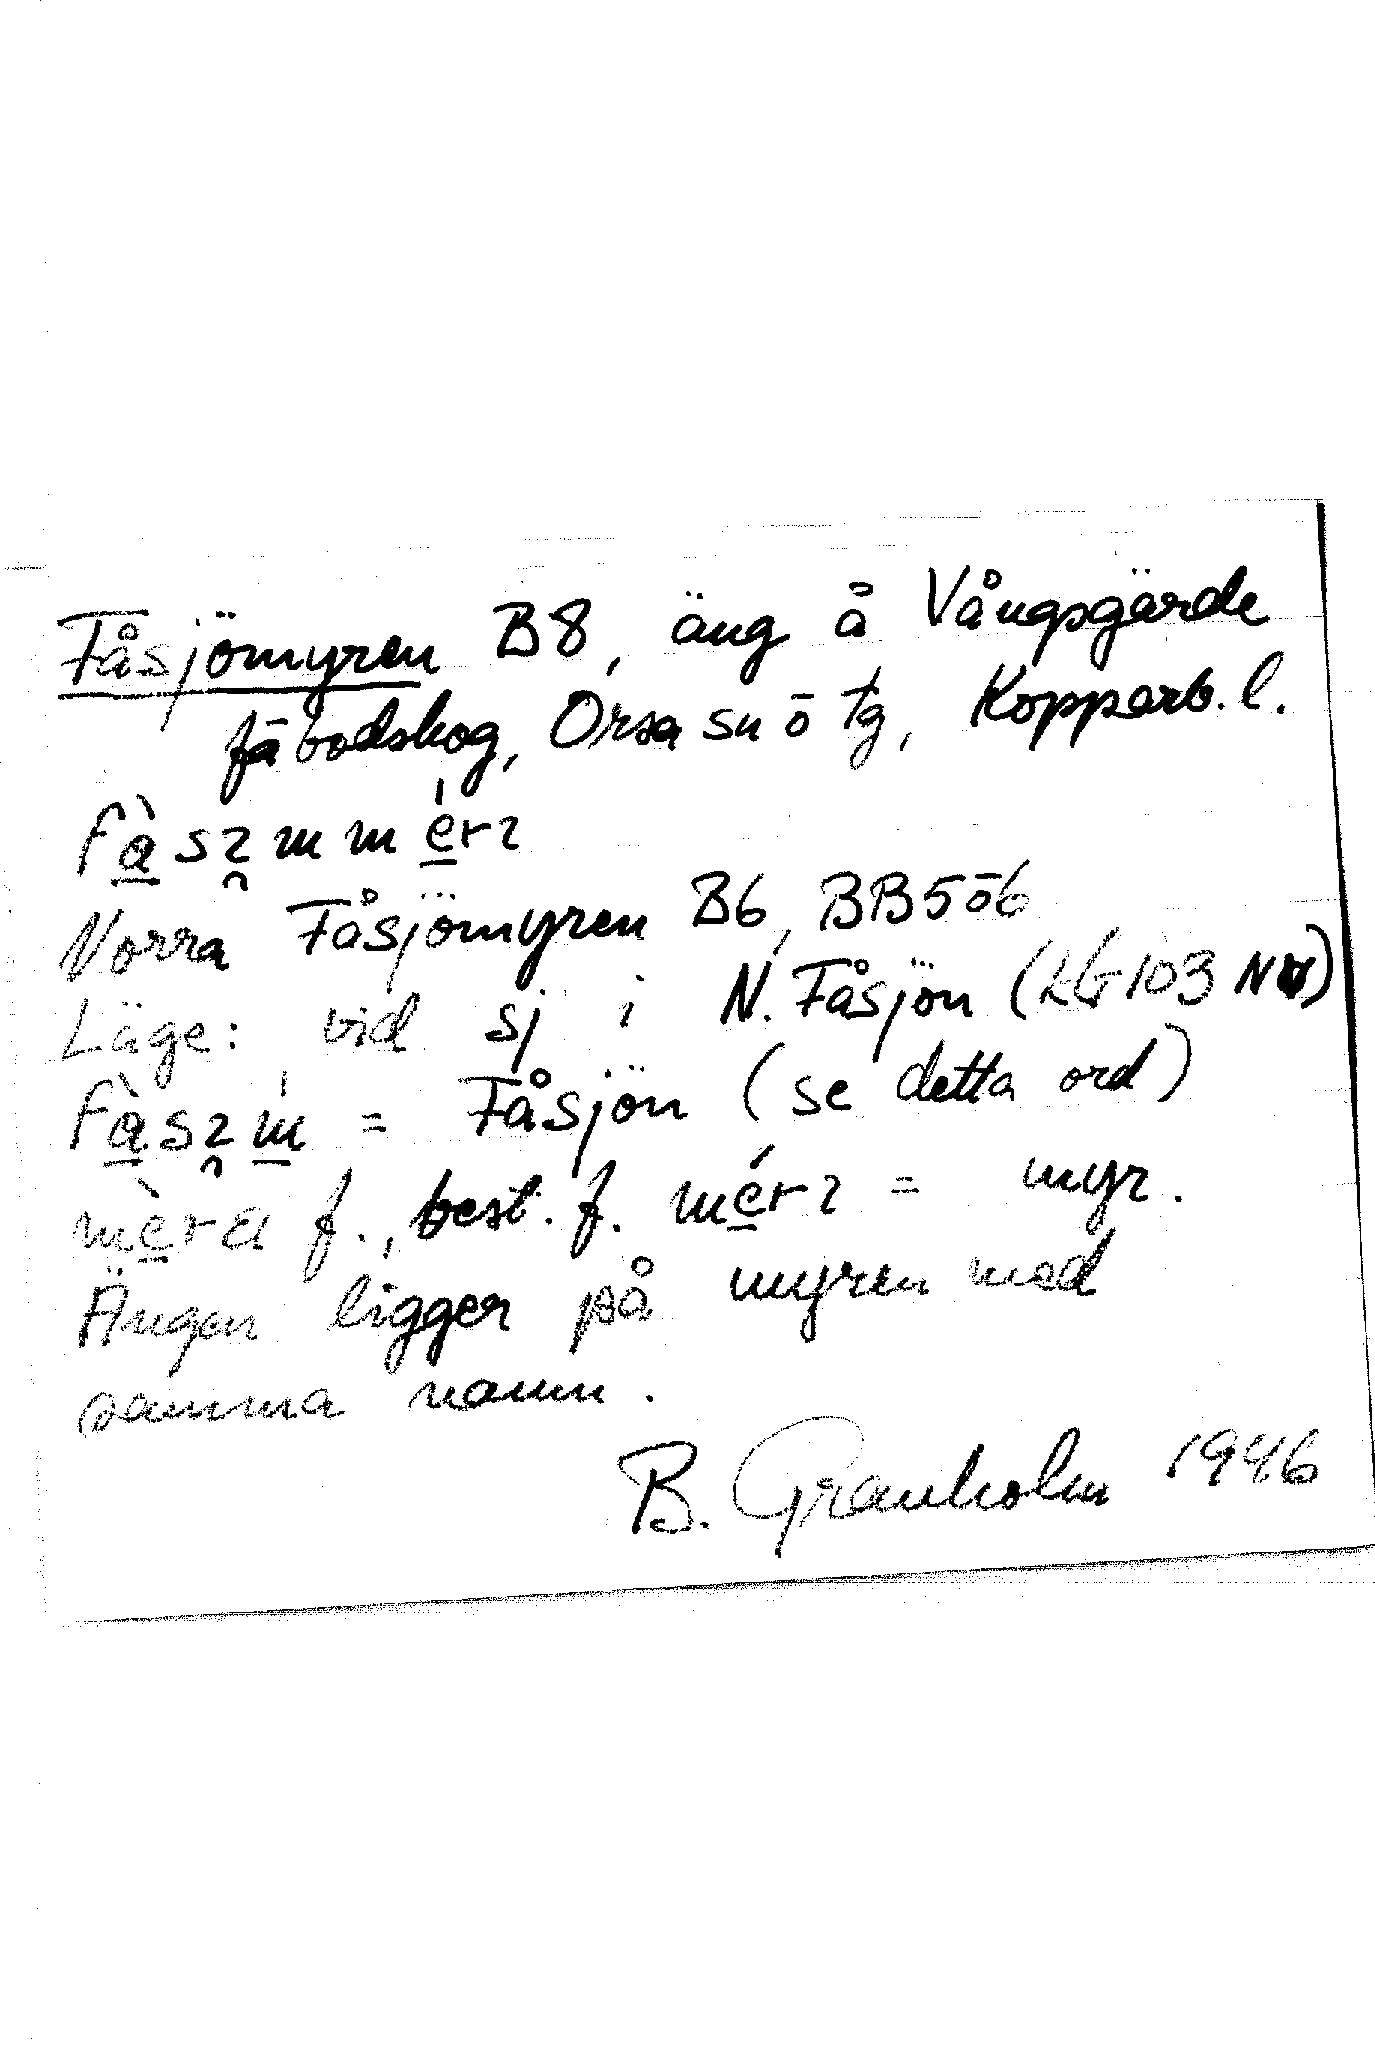 Fåsjömyren B8, äng å Vångsgärde
fäbodskog, Orsa sn ō tg, Kopparb. l.
Norra Fåsjömyren B6, BB5ō6
Läge: vid sj i N. Fåsjön (KG103 NV)
= Fåsjön (se detta ord)
f., best. f. = myr.
Ängen ligger på myren med
samma namn.
B. Granholm 1946